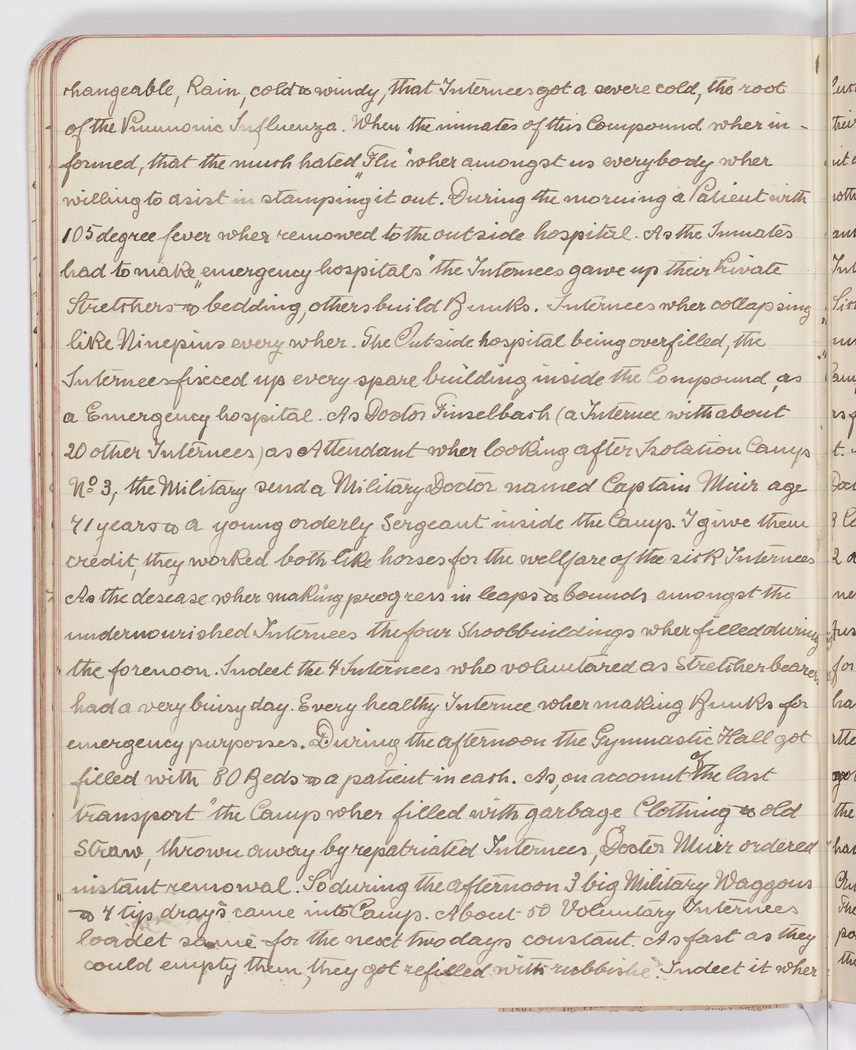 changeable, Rain, cold & windy, that Internees got a severe cold, the root
of the Pnumonic Influenza. When the inmates of this Compound wher in-
formed, that the much hated "Flu" wher amongst us everybody wher
willing to asist in stamping it out. During the morning a Patient with
105 degree fever wher removed to the outside hospital. As the Inmates
had to make "emergency hospitals" the Internees gawe up their Private
Stretchers & bedding, others build Bunks. Internees wher collapsing
like Ninepins every wher. The Outside hospital being overfilled, the
Internees fixced up every spare building inside the Compound, as
a Emergency hospital. As Doctor Finselbach (a Internee with about
20 other Internees) as Attendant wher looking after Isolation Camp
No 3, the Military send a Military Doctor named Captain Muir age
71 years & a young orderly Sergeant inside the Camp. I giwe them
credit, they worked both like horses for the wellfare of the sick Internees
As the desease wher making progress in leaps & bounds amongst the
undernourished Internees the four Shoolbuildings wher filled during
the forenoon. Indeet the 4 Internees who voluntared as Stretcher bearer
had a very buisy day. Every healthy Internee wher making Bunks for
emergency purposses. During the afternoon the Gymnastic Hall got
filled with 80 Beds & a patient in each. As, on account of the last
transport" the Camp wher filled with garbage Clothing & old
Straw, thrown away by repatriated Internees, Doctor Muir ordered
instant removal. So during the afternoon 3 big Military Waggons
& 4 tip dray's came into Camp. About 50 Voluntary Internees
loadet same for the next two days constant. As fast as they
could empty them, they got refilled with rubbishe. Indeet it wher